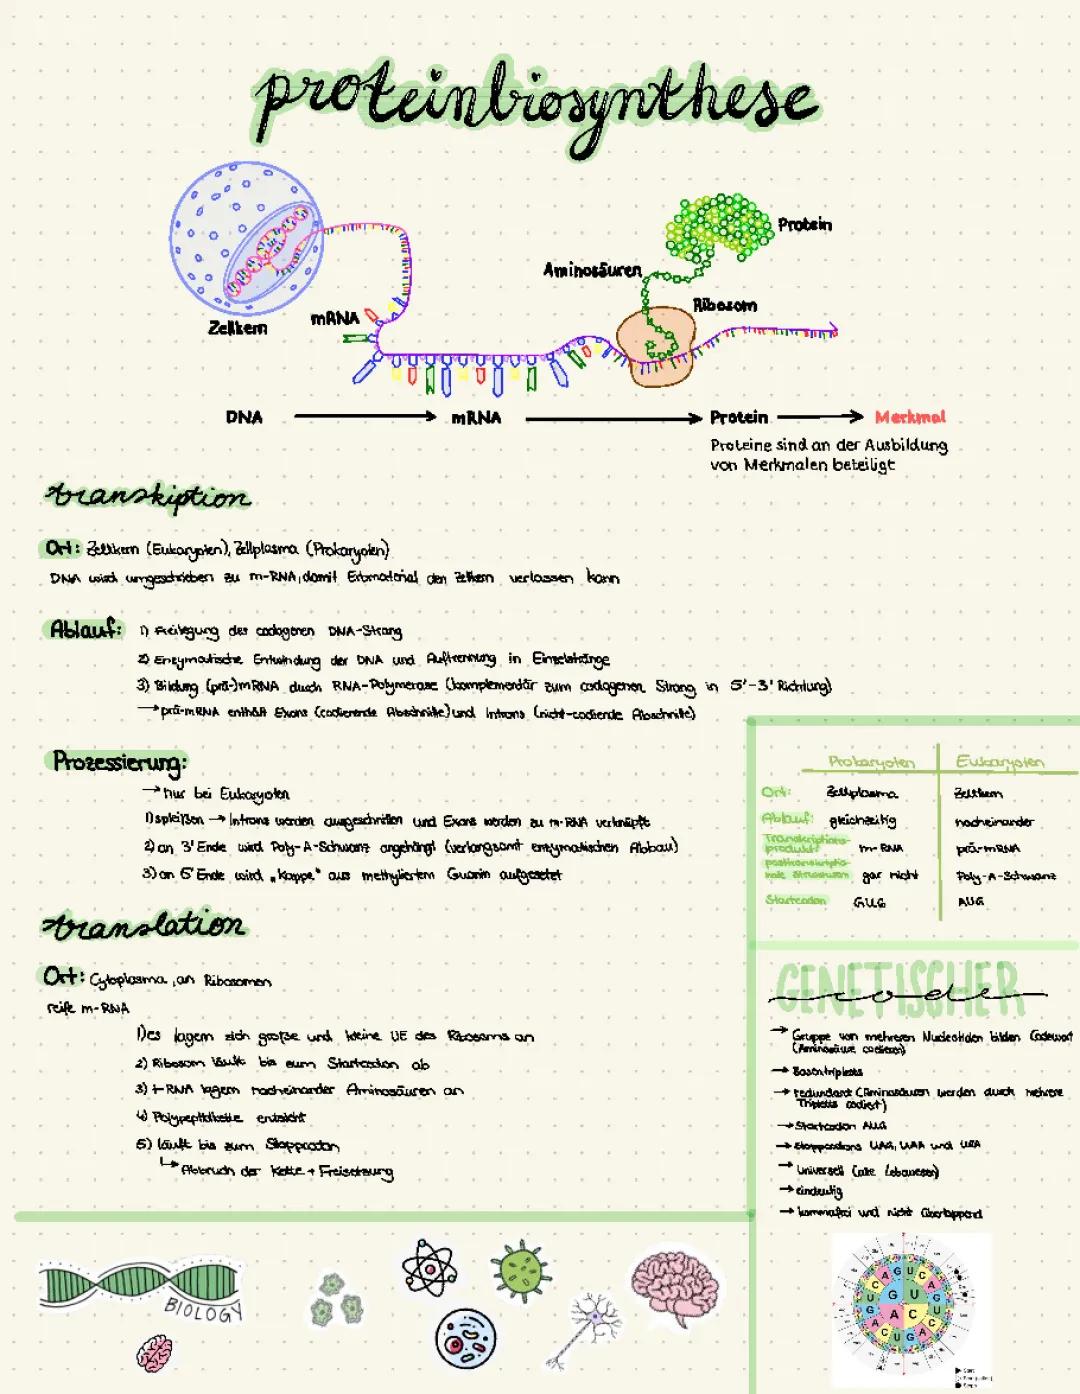 proteinbiosynthese
Protein
Aminosäuren
Ribosom
Zellkern
mRNA
DNA → mRNA → Protein → Merkmal
Proteine sind an der Ausbildung
von Merkmalen beteiligt
transkiption
Ort: Zellkern (Eukaryoten), Zellplasma (Prokaryoten)
DNA wird umgeschrieben zu m-RNA, damit Erbmaterial den Zellkern verlassen kann
Ablauf: 1) Freilegung des codogenen DNA-Strang
2) Enzymatische Entwindung der DNA und Auftrennung in Einzelstränge
3) Bildung (prä-)mRNA durch RNA-Polymerase (komplementär zum codogenen Strang in 5'-3' Richtung)
→ prä-mRNA enthält Exons (codierende Abschnitte) und Introns (nicht-codiende Abschnitte)
Prozessierung:
→ nur bei Eukaryoten
1) spleißen → Introns werden ausgeschnitten und Exons werden zu m-RNA verknüpft
2) an 3' Ende wird Poly-A-Schwanz angehängt (verlangsamt enzymatischen Abbau)
3) an 5' Ende wird „Kappe" aus methyliertem Guanin aufgesetzt
translation
Ort: Cytoplasma, an Ribosomen
reife m-RNA
1) es lagern sich große und kleine UE des Ribosoms an
2) Ribosom läuft bis zum Startcodon ab
3) t-RNA lagern nacheinander Aminosäuren an
4) Polypeptidkette entsteht
5) läuft bis zum Stoppcodon
↳ Abbruch der Kette + Freisetzung
Prokaryoten Eukaryoten
Ort: Zellplasma Zellkern
Ablauf: gleichzeitig nacheinander
Transkriptions-
produkt: m-RNA prä-mRNA
posttranskriptio-
nale Strukturen gar nicht Poly-A-Schwanz
Startcodon GUG AUG
GENETISCHER
code
→ Gruppe von mehreren Nucleotiden bilden Codewort
(Aminosäure codieren)
→ Basentripletts
→ redundant (Aminosäuren werden durch mehrere
Tripletts codiert)
→ Startcodon AUG
→ Stoppcodons UAG, UAA und UGA
→ universell (alle Lebewesen)
→ eindeutig
→ kommafrei und nicht überlappend
BIOLOGY